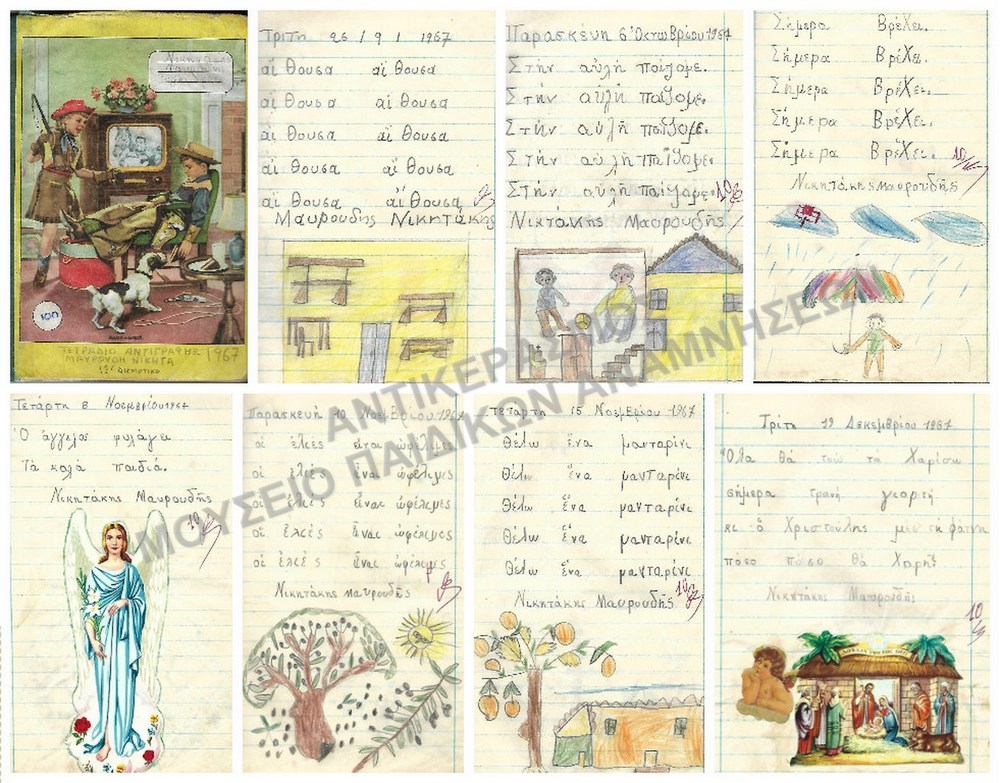 100
ΤΕΤΡΑΔΙΟ ΑΝΤΙΓΡΑΦΗΣ 1967
ΜΑΥΡΟΥΔΗ ΝΙΚΗΤΑ
12ο ΔΗΜΟΤΙΚΟ
ΤΡΙΤΗ 26/9/1967
αἴθουσα αἴθουσα
αἴθουσα αἴθουσα
αἴθουσα αἴθουσα
αἴθουσα αἴθουσα
αἴθουσα αἴθουσα
Μαυρουδης Νικητάκης
Παρασκευή 6 Ὀκτωβρίου 1967
Στήν αὐλή παίζομε.
Στήν αὐλή παίζομε.
Στήν αὐλή παίζομε.
Στήν αὐλή παίζομε.
Στήν αὐλή παίζομε. 10
Νικτάκης Μαυρουδῆς
Σήμερα Βρέχει.
Σήμερα Βρέχει.
Σήμερα Βρέχει.
Σήμερα Βρέχει.
Σήμερα Βρέχει. 10
Νικητάκης Μαυρουδῆς
Τετάρτη 8 Νοεμβρίου 1967
Ὁ ἄγγελος φυλάγει
Τά καλά παιδιά.
Νικητάκης Μαυρουδῆς
10
Παρασκευή 10 Νοεμβρίου 1967
οἱ ἐλιές εἶναι ὠφέλιμες
οἱ ἐλιές εἶναι ὠφέλιμες
οἱ ἐλιές εἶναι ὠφέλιμες
οἱ ἐλιές εἶναι ὠφέλιμες
οἱ ἐλιές εἶναι ὠφέλιμες
Νικητάκης Μαυρουδῆς
Τετάρτη 15 Νοεμβρίου 1967
Θέλω ἕνα μανταρίνι
Θέλω ἕνα μανταρίνι
Θέλω ἕνα μανταρίνι
Θέλω ἕνα μανταρίνι
Θέλω ἕνα μανταρίνι
Νικητάκης Μαυρουδῆς
10
Τρίτη 19 Δεκεμβρίου 1967
Ὅλα θά τοῦ τά Χαρίσω
σήμερα τρανή γιορτή
κι ὁ Χριστούλης μεσ τή φάτνη
πόσο πόσο θά Χαρῆ
Νικητάκης Μαυρουδῆς
10
ΑΝΤΙΚΕΡΑΣΜΟΣ
ΜΟΥΣΕΙΟ ΠΑΙΔΙΚΩΝ ΑΝΑΜΝΗΣΕΩΝ